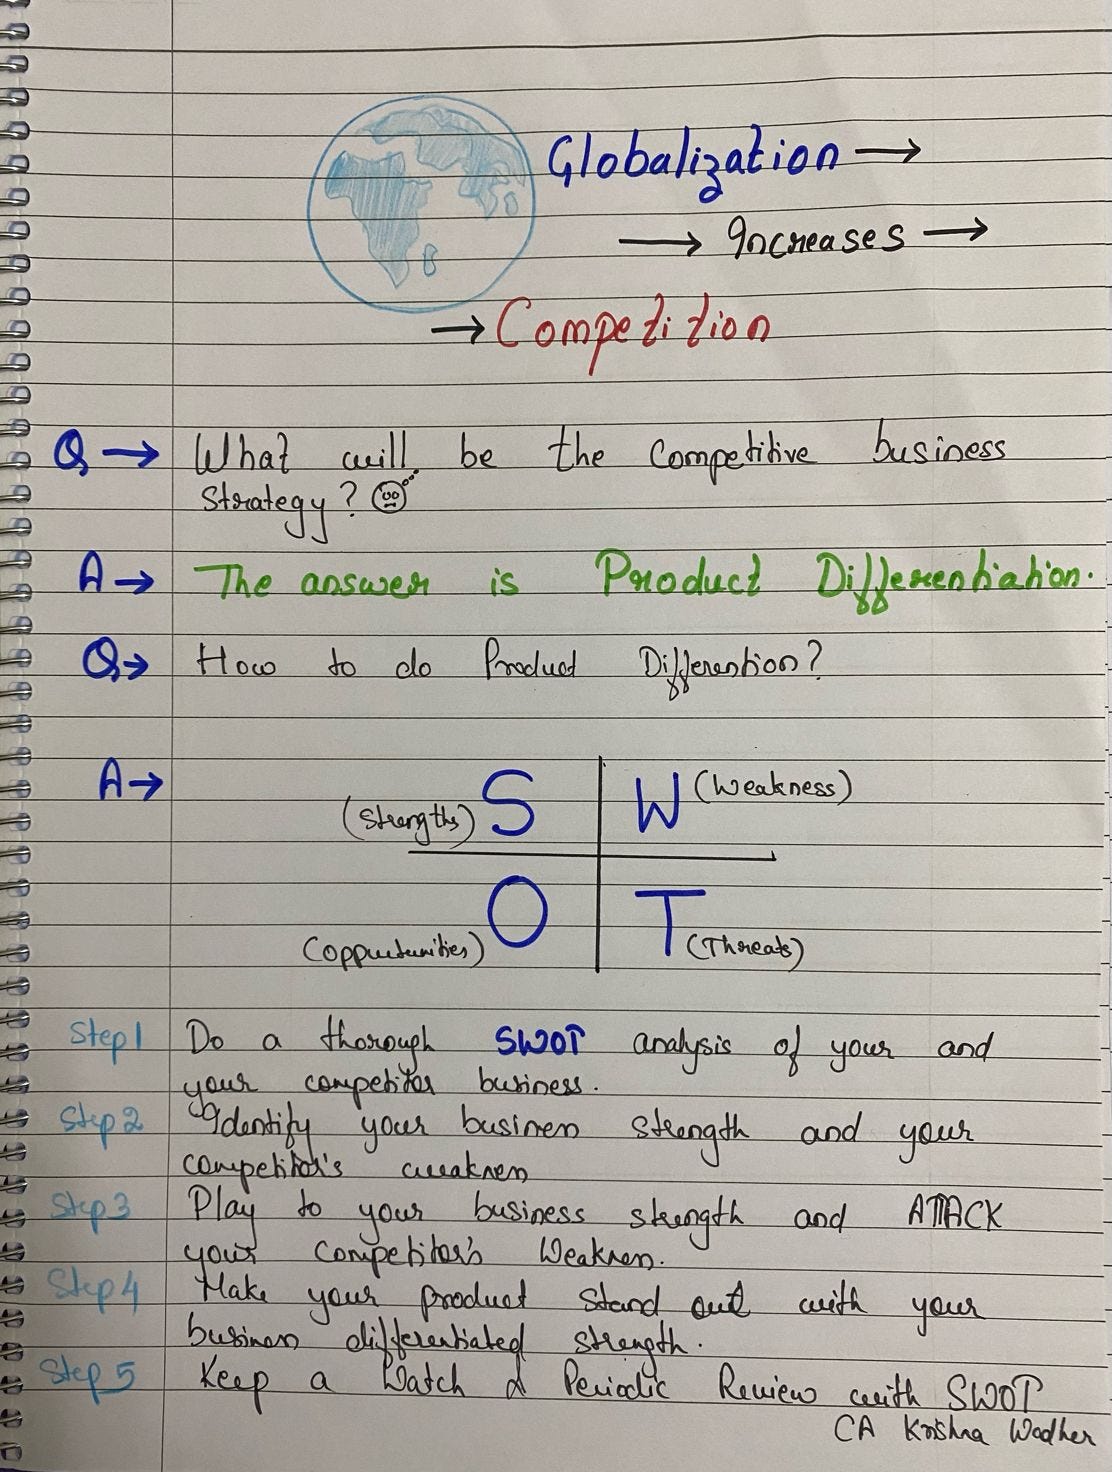 Globalization →
→ Increases →
→ Competition
Q → What will be the competitive business
strategy?
A → The answer is Product Differentiation.
Q → How to do Product Differention?
A →
(Strengths) S W (Weakness)
(Oppurtunities) O T (Threats)
Step 1 Do a thorough SWOT analysis of your and
your competitor business.
Step 2 Identify your business strength and your
competitor's weakness
Step 3 Play to your business strength and ATTACK
your competitor's Weakness.
Step 4 Make your product stand out with your
business differentiated strength.
Step 5 Keep a Watch & Periodic Review with SWOT
CA Krishna Wadher